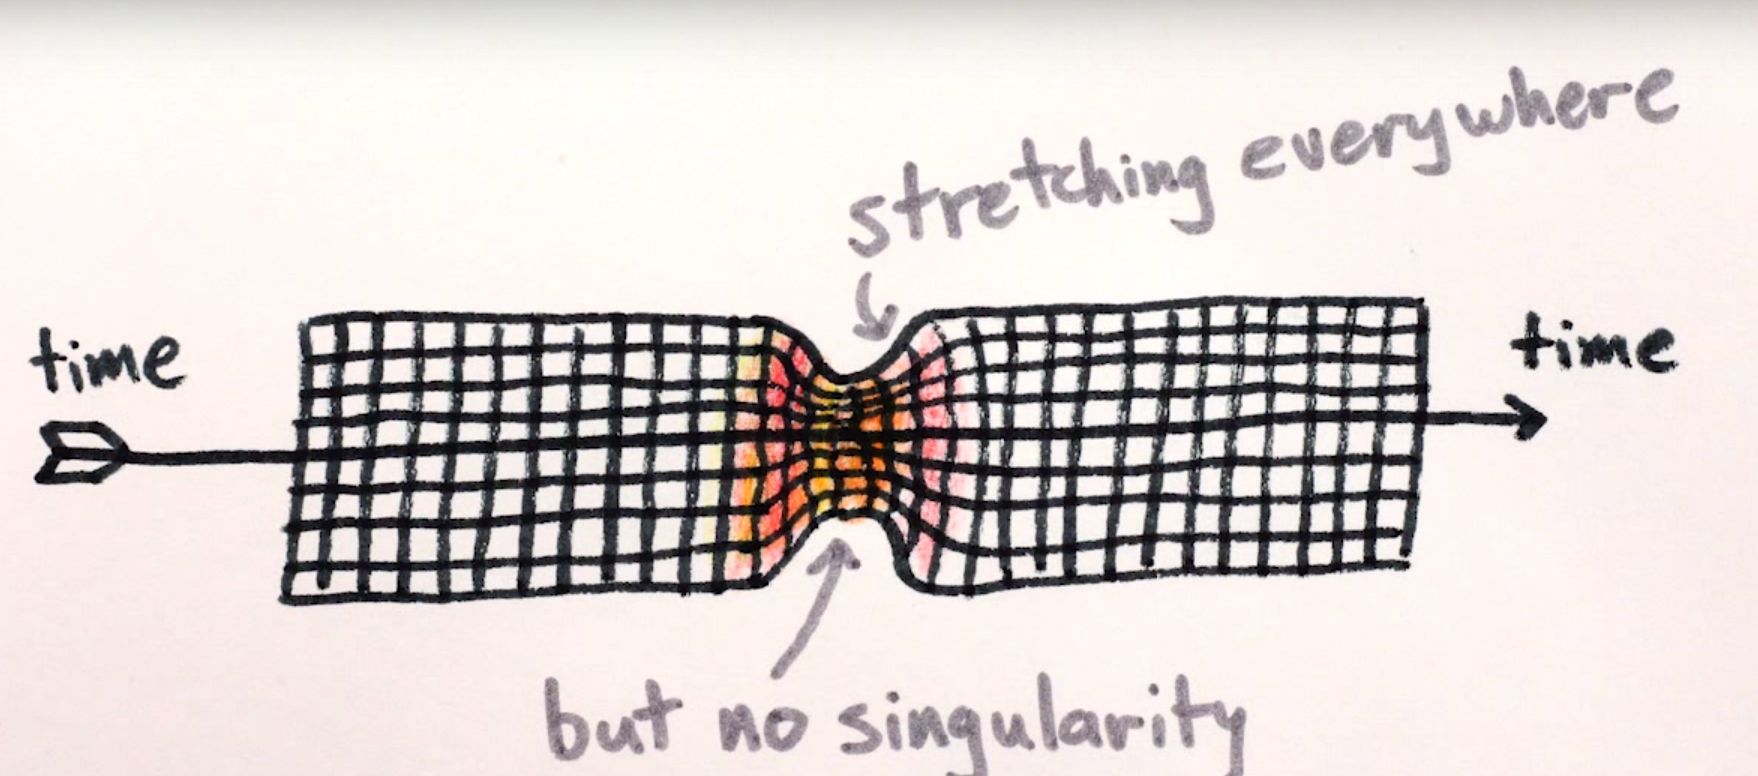 stretching everywhere
time
time
but no singularity